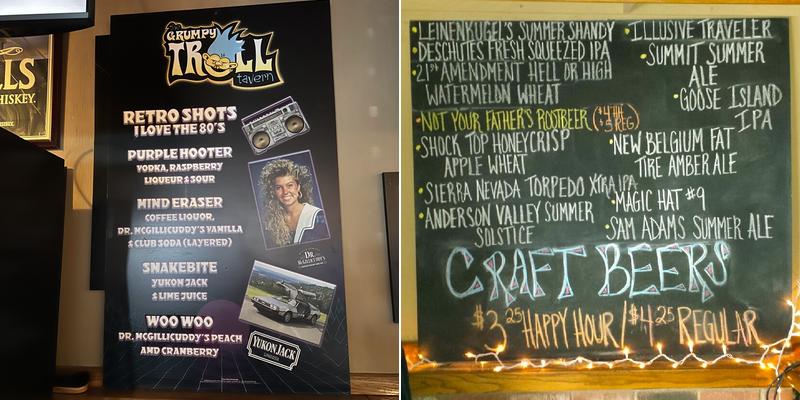 LLS
WHISKEY.
The
GRUMPY
TROLL
tavern
RETRO SHOTS
I LOVE THE 80'S
PURPLE HOOTER
VODKA, RASPBERRY
LIQUEUR & SOUR
MIND ERASER
COFFEE LIQUOR,
DR. MCGILLICUDDY'S VANILLA
& CLUB SODA (LAYERED)
DR.
MCGILLICUDDY'S
SNAKEBITE
YUKON JACK
& LIME JUICE
WOO WOO
DR. MCGILLICUDDY'S PEACH
AND CRANBERRY
YUKON JACK
• LEINENKUGEL'S SUMMER SHANDY
• DESCHUTES FRESH SQUEEZED IPA
• 21st AMENDMENT HELL OR HIGH
WATERMELON WHEAT
• NOT YOUR FATHER'S ROOTBEER ($4 HH $5 REG)
• SHOCK TOP HONEYCRISP
APPLE WHEAT
• SIERRA NEVADA TORPEDO XTRA IPA
• ANDERSON VALLEY SUMMER
SOLSTICE
• ILLUSIVE TRAVELER
• SUMMIT SUMMER
ALE
• GOOSE ISLAND
IPA
• NEW BELGIUM FAT
TIRE AMBER ALE
• MAGIC HAT #9
• SAM ADAMS SUMMER ALE
CRAFT BEERS
$3.25 HAPPY HOUR / $4.25 REGULAR